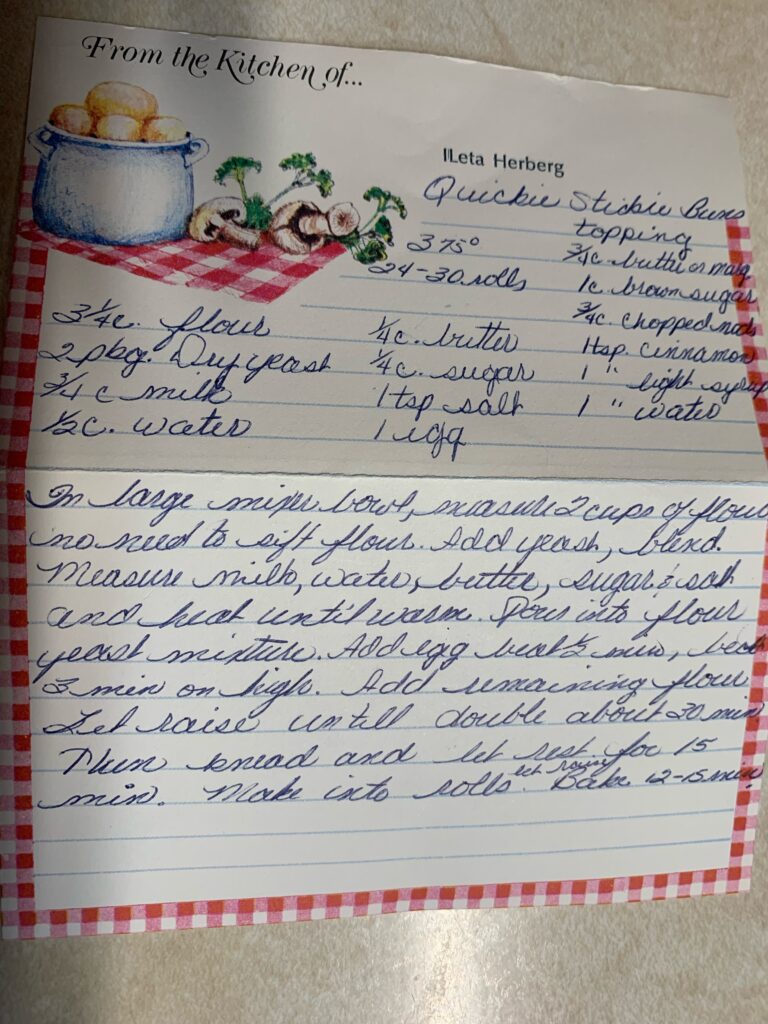 From the Kitchen of...
Leta Herberg
Quickie Stickie Buns
375° topping
24-30 rolls ¾c. butter or marg
1c. brown sugar
¾c. chopped nuts
3¼c. flour ¼c. butter 1 tsp. cinnamon
2 pkg. Dry yeast ¼c. sugar 1 " light syrup
¾c milk 1 tsp salt 1 " water
½c. water 1 egg
In large mixer bowl, measure 2 cups of flour
no need to sift flour. Add yeast, blend.
Measure milk, water, butter, sugar & salt
and heat until warm. Pour into flour
yeast mixture. Add egg beat ½ min, beat
3 min on high. Add remaining flour
Let raise untill double about 30 min
Then knead and let rest for 15
min. Make into rolls let raise Bake 12-15 min.